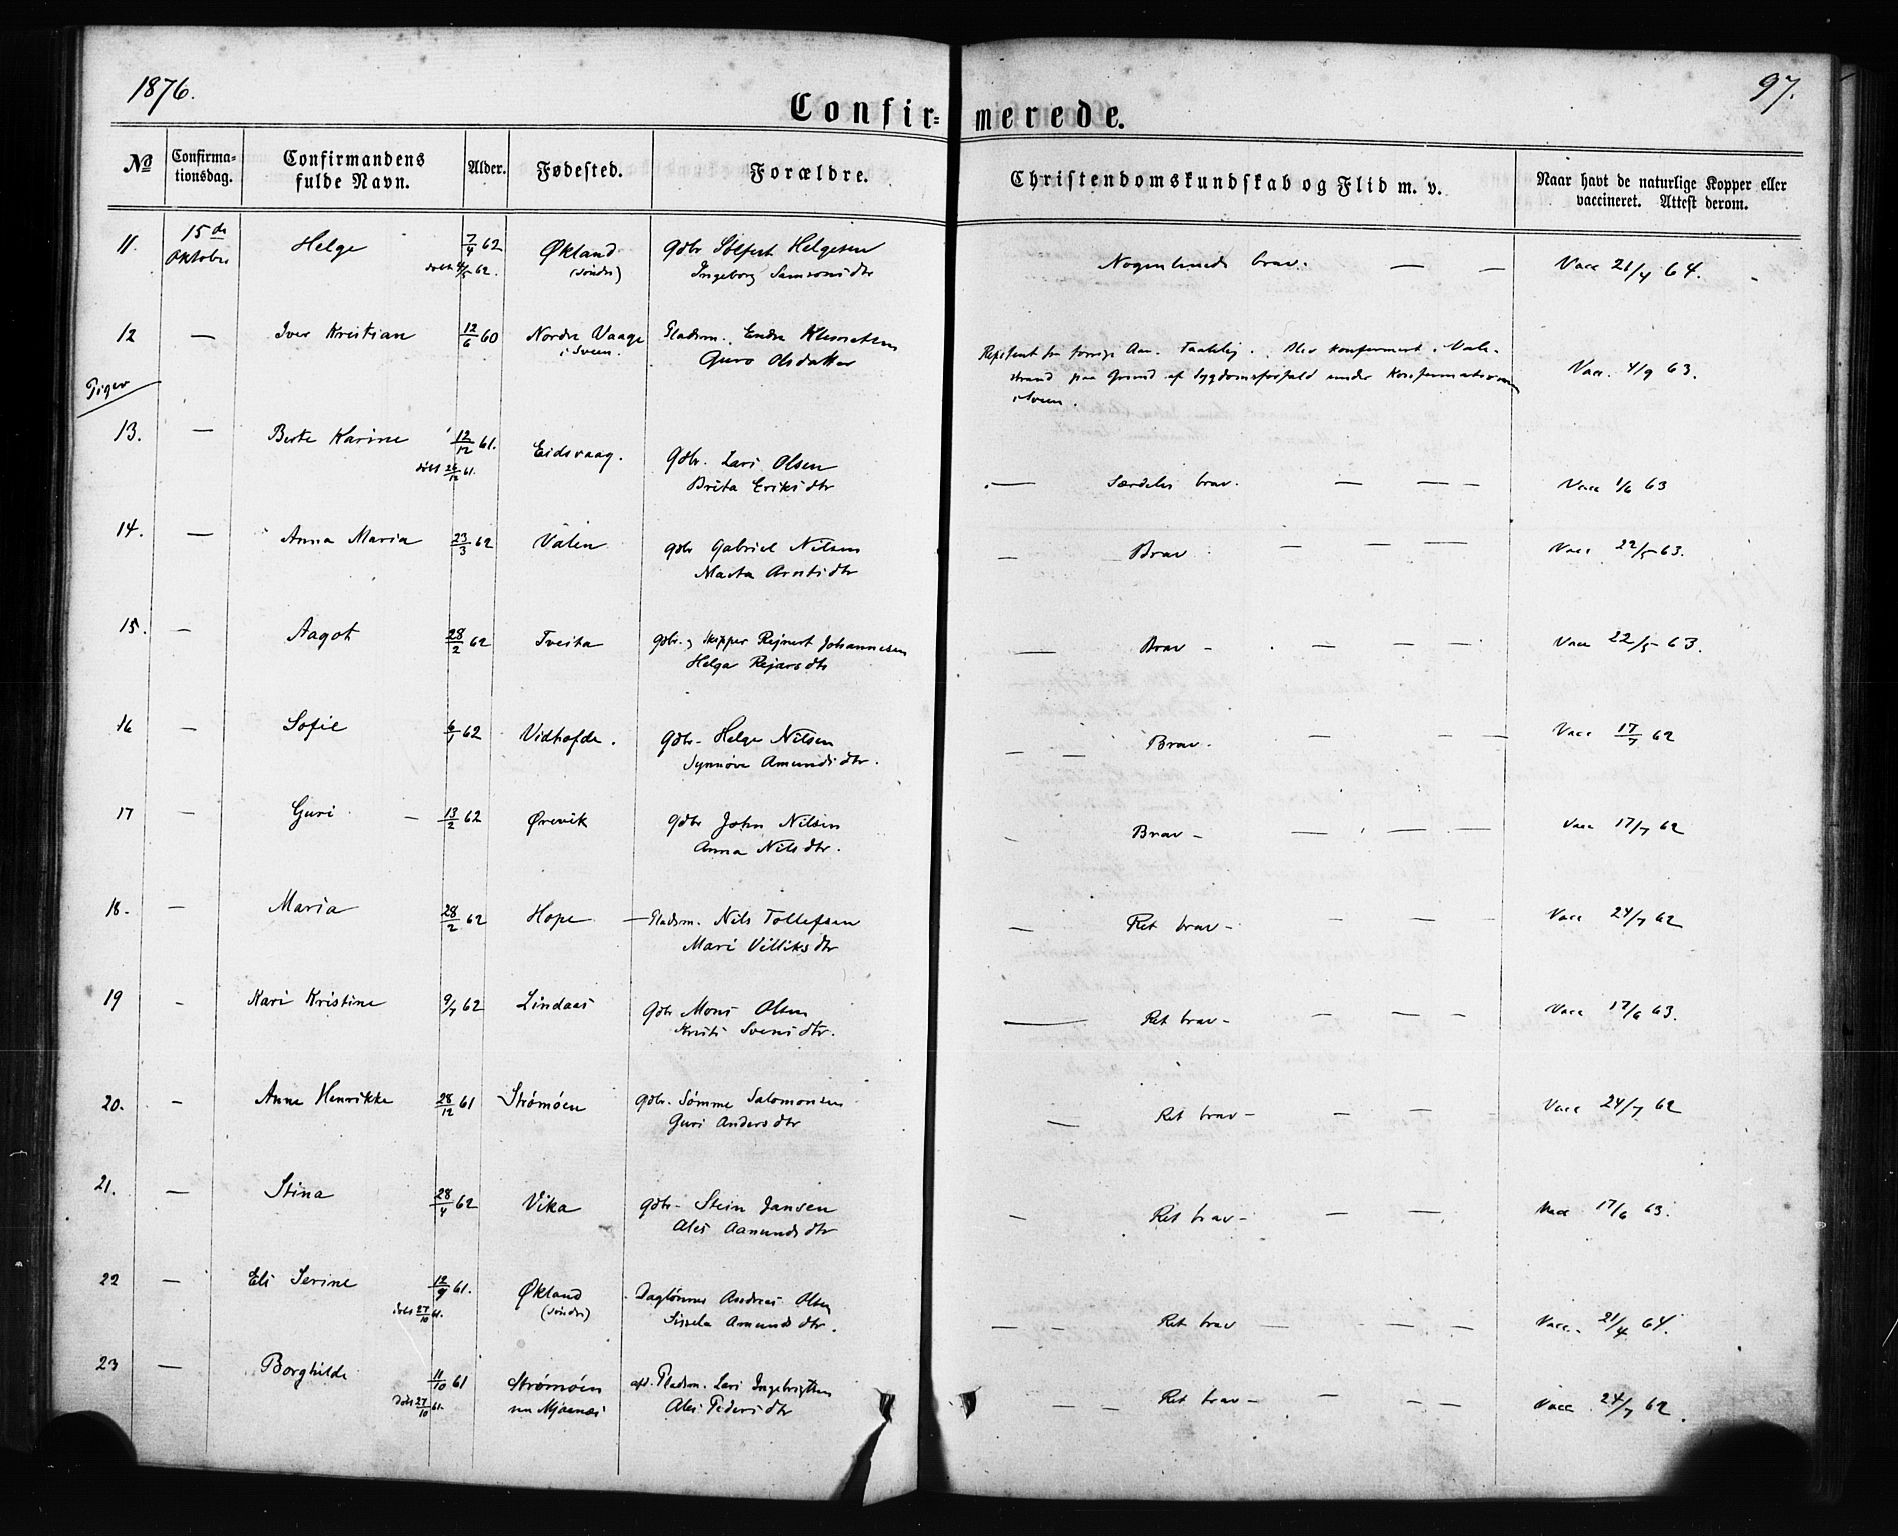 1876.
97.
Confir= merede.
No
Confirma-
tionsdag.
Confirmandens
fulde Navn.
Alder.
Fødested.
Forældre.
Christendomskundskab og Flid m. v.
Naar havt de naturlige Kopper eller
vaccineret. Attest derom.
11. 15de Helge 7/4 62 Økland Gdbr Helgesen
Oktober døbt 62. (søndre) Ingeborg Samsonsdtr
Nogenlunde brav. — — Vacc 21/4 64.
12 — Iver Kristian 12/6 60 Nordre Vaage Pladsm. Endre
i Sveen. Guro Olsdatter
Repetent fra forrige Aar. Blev konfirmert i Vale-
strand paa Grund af Sygdomsforfald under Konfirmationen
i Sveen.
Vacc. 4/9 63.
Piger
13. — Berte Karine 12/12 61. Eidsvaag. Gdbr. Lars Olsen
døbt 26/12 61. Brita Eriksdtr
— Særdeles brav. — — — Vacc 1/6 63
14. — Anna Maria 23/3 62 Valen Gdbr Gabriel Nilsen
Marta dtr
— Brav — — — Vacc 22/5 63.
15. — Aagot 28/2 62 Tveita Gdbr. og Skipper Rejnert Johannesen
Helga dtr
— Brav — — — — Vacc 22/5 63.
16 — Sofie 6/1 62 Vidhofde. Gdbr. Helge Nilsen
Synnøve Amundsdtr.
— — Brav. — — — Vacc 17/7 62
17 — Guri — 13/2 62 Ørevik Gdbr John Nilsen
Anna Nilsdtr.
— Brav — — — — Vacc 17/7 62
18. — Maria 28/2 62 Hope — Pladsm. Nils Tollefsen
Mari Villiksdtr
— Ret brav — — — Vacc 24/7 62
19 — Kari Kristine 9/7 62 Lindaas Gdbr Mons Olsen
Kristi Svensdtr.
— Ret brav — — — — Vacc 17/6 63.
20. — Anne Henrikke 28/12 61 Strømøen Gdbr. Sømme Salomonsen
Guri Andersdtr
— Ret brav — — — — Vacc 24/7 62
21. — Stina 28/4 62 Vika Gdbr. Stein Jansen
Ales Aamundsdtr
— Ret brav — — — Vacc 17/6 63.
22 — Eli Serine 12/9 61. Økland Daglønner Andreas Olsen
døbt 27/10 61. (søndre) Sissela Amundsdtr.
— — Ret brav — — — Vacc. 21/4 64.
23 — Borghilde 11/10 61 Strømøen afd. Pladsm. Lars Ingebrigtsen
døbt 27/10 61. nu Mjaanæs Ales Pedersdtr
— — Ret brav — — — — Vacc 24/7 62.